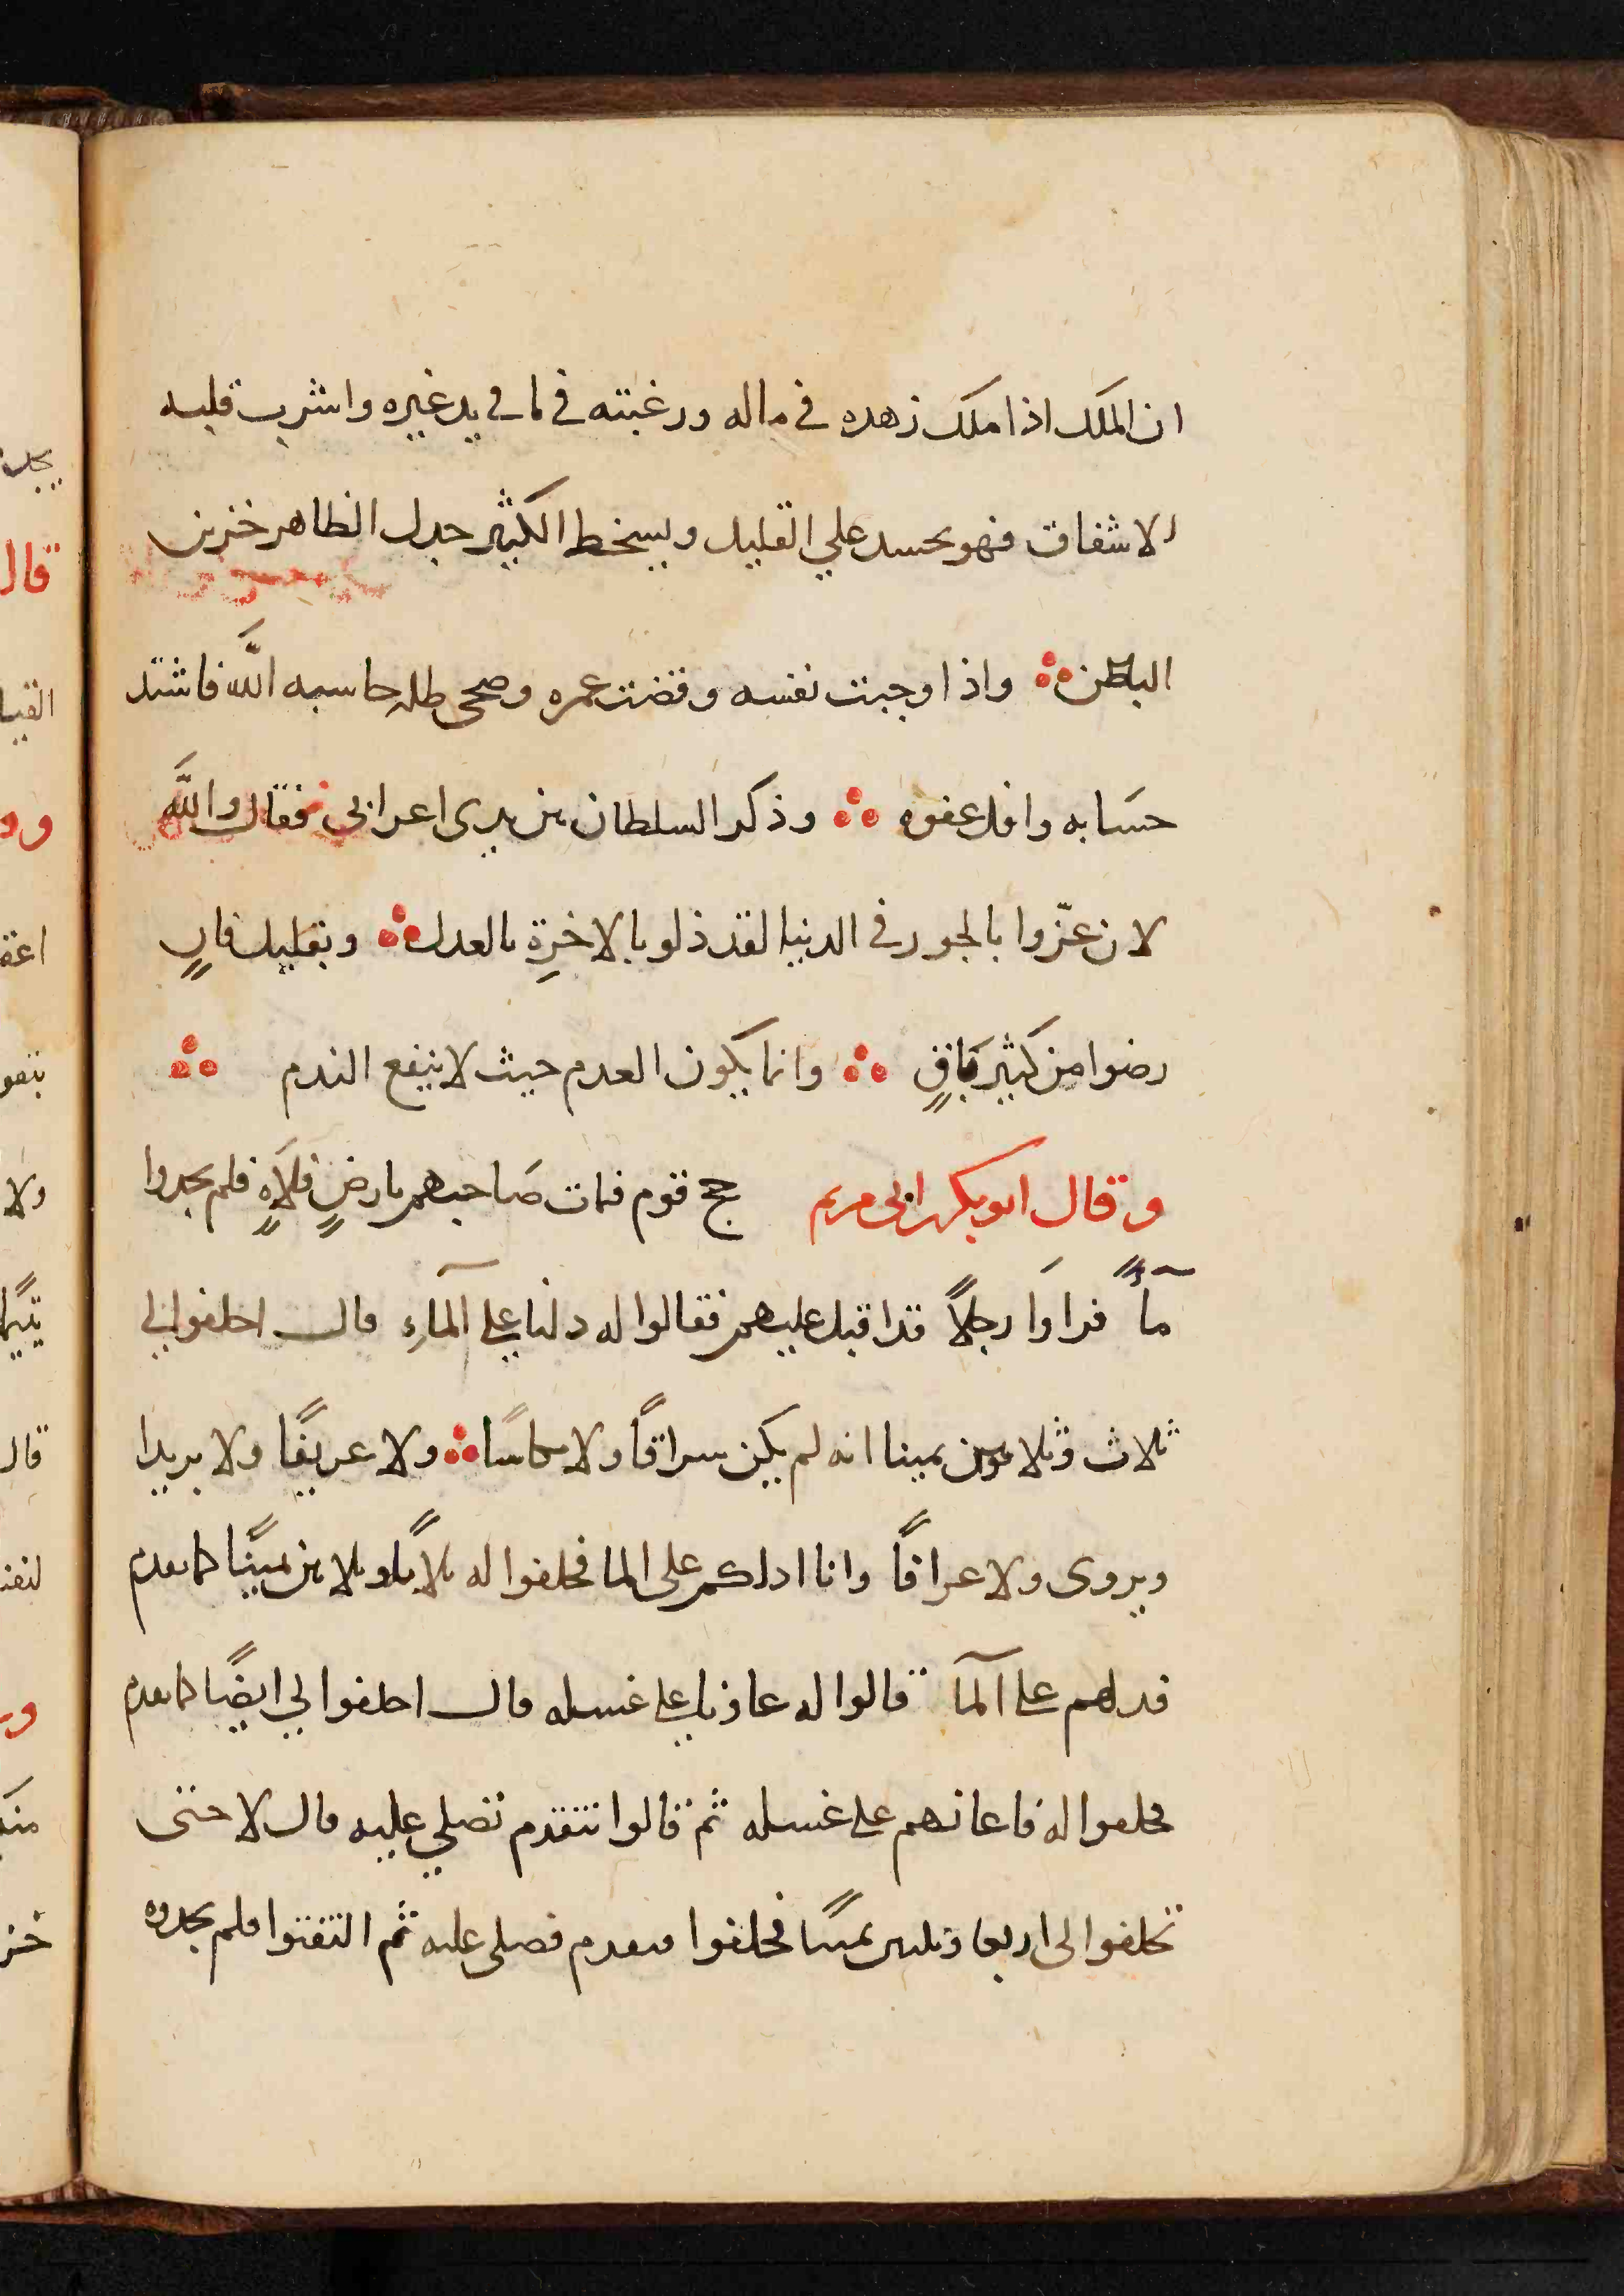 ان الملك اذا ملك زهده في ماله ورغبته في ما في يد غيره واشرب قلبه
الاشفاق فهو يحسد علي القليل ويسخط الكثير جدل الظاهر خزين
الباطن واذا وجبت نفسه وقضت عمره وضحى ظله حاسبه اللّه فاشتد
حسَابه واقل عفوه وذكر السلطان بين يدى اعرابى فقال واللّه
لان عزّوا بالجور في الدنيا لقد ذلو بالاخرةِ بالعدل وبقليل فانٍ
رضوا من كثير بَاقٍ وانما يكون العدم حيث لا ينفع الندم
وقال ابو بكر ابى مريم حج قوم فمات صَاحبهم بارضٍ فلَاهٍ فلم يجدوا
مآً فراوَا رجلاً قد اقبل عليهم فقالوا له دلنا علي المآءِ قال احلفوا لي
ثلاث وثلاثون يمينا انه لم يكن سراقاً ولا مكاسًا ولا عريفًا ولا بريدا
ويروى ولا عرافاً وانا ادلكم على الما فحلفوا له ثلاثاً وثلاثين يمينًا كما تقدم
فدلهم على المآ قالوا له عاونا علي غسله قال احلفوا لي ايضًا كما تقدم
فحلفوا له فاعانهم على غسله ثم قالوا تتقدم تصلي عليه قال لا حتى
تحلفوا لى اربعا وثلثين يمينًا فحلفوا فتقدم فصلى عليه ثم التفتوا فلم يجدوه